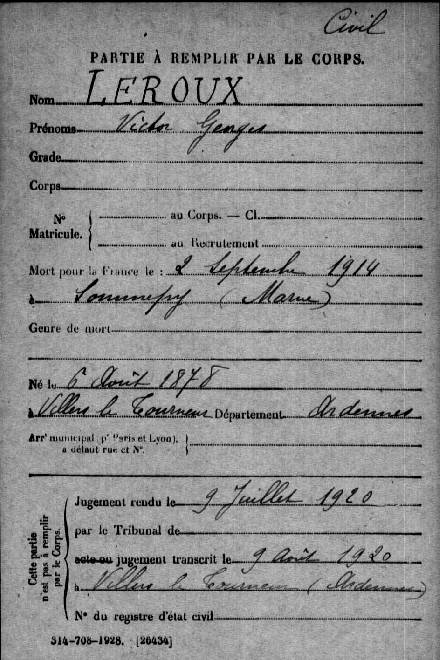 Civil
PARTIE À REMPLIR PAR LE CORPS.
Nom LEROUX
Prénoms Victor Georges
Grade
Corps
N° Matricule. { au Corps. — Cl.
au Recrutement
Mort pour la France le : 2 Septembre 1914
à Sommepy (Marne)
Genre de mort
Né le 6 Août 1878
à Villers le Tourneur Département Ardennes
Arrt municipal (pr Paris et Lyon),
à défaut rue et N°.
Cette partie n'est pas à remplir par le Corps.
Jugement rendu le 9 Juillet 1920
par le Tribunal de
acte ou jugement transcrit le 9 août 1920
à Villers le Tourneur (Ardennes)
N° du registre d'état civil
514-708-1928. [26434]